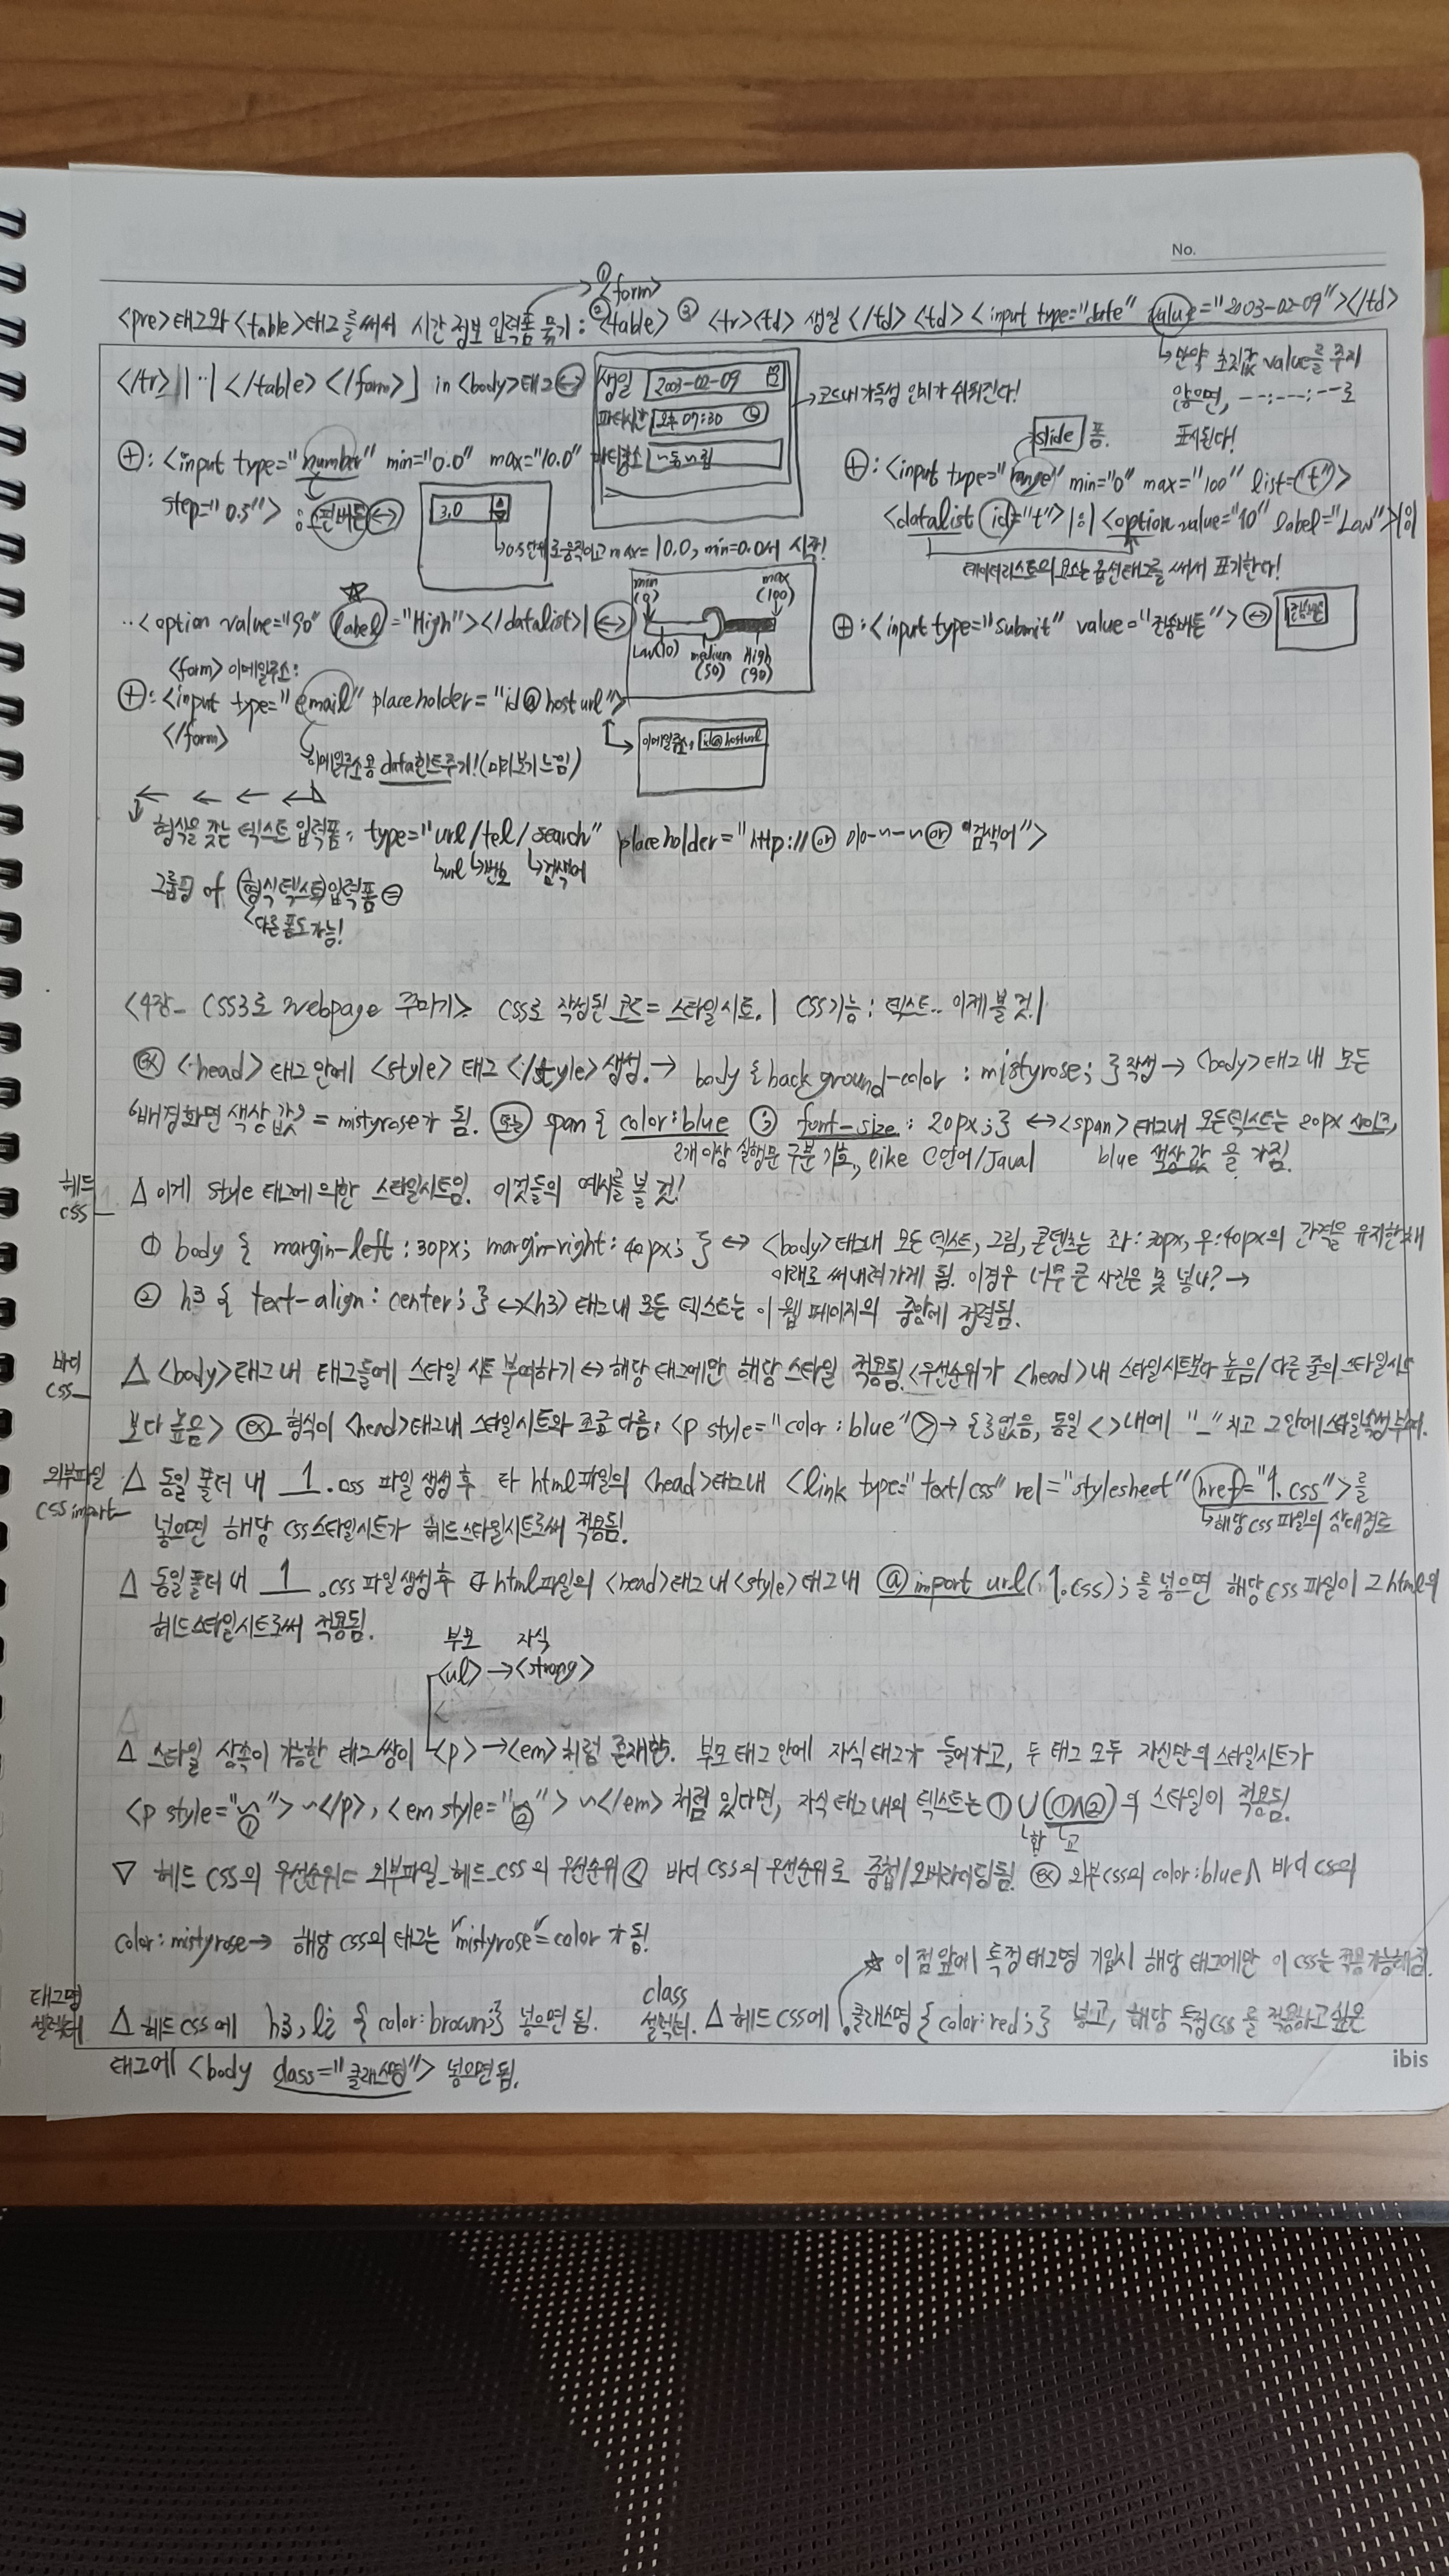 No.
<pre>태그와 <table>태그를 써서 시간 정보 입력폼 묶기 : ① <form> ② <table> ③ <tr><td> 생일 </td> <td> <input type="date" value="2003-02-09"></td>
</tr> |··| </table> </form>」 in <body>태그 ↔
생일 2003-02-09
파티시간 오후 07:30
→ 코드내 가독성 인지가 쉬워진다!
↳ 만약 초기값 value를 주지
않으면, --:---:--로
표시된다!
⊕: <input type="number" min="0.0" max="10.0"
step="0.5"> : ↔
3.0
↳ 0.5단위로 움직이고 max=10.0, min=0.0서 시작!
slide 폼.
⊕: <input type="range" min="0" max="100" list="t">
<datalist id="t"> |:| <option value="10" label="Low">|:|
데이터리스트의 요소는 옵션태그를 써서 표기한다!
··<option value="90" label="High"></datalist>| ↔
min (0)
max (100)
Low(10) medium (50) High (90)
⊕: <input type="submit" value="전송버튼"> ↔ 전송버튼
<form> 이메일주소:
⊕: <input type="email" placeholder="id@host url">
</form>
이메일주소: id@hosturl
↳ 이메일주소용 data힌트주기! (미리보기 느낌)
← ← ← ←
형식을 갖는 텍스트 입력폼 : type="url/tel/search" placeholder="http:// or 010-~-~ or "검색어">
↳url ↳번호 ↳검색어
그룹핑 of 형식텍스트입력폼 =
다른 폼도 가능!
<4장_ CSS3로 webpage 꾸미기> CSS로 작성된 코드 = 스타일시트. | CSS기능 : 텍스트.. 이제 볼 것.|
ex <head> 태그 안에 <style> 태그 </style> 생성. → body { background-color : mistyrose; } 작성 → <body> 태그 내 모든
'배경화면 색상 값' = mistyrose가 됨. 또는 span { color:blue ; font-size : 20px ; } ↔ <span> 태그내 모든텍스트는 20px 사이즈,
2개 이상 실행문 구분 기호, like C언어/Java! blue 색상 값 을 가짐.
헤드 css_ △ 이게 style 태그에 의한 스타일시트임. 이것들의 예시를 볼 것!
① body { margin-left : 30px; margin-right : 40px; } ↔ <body>태그내 모든 텍스트, 그림, 콘텐츠는 좌:30px, 우:40px의 간격을 유지한채
아래로 써내려가게 됨. 이경우 너무 큰 사진은 못 넣나? →
② h3 { text-align : center; } ↔ <h3> 태그내 모든 텍스트는 이 웹 페이지의 중앙에 정렬됨.
바디 css_ △ <body>태그 내 태그들에 스타일 시트 부여하기 ↔ 해당 태그에만 해당 스타일 적용됨. <우선순위가 <head>내 스타일시트보다 높음/다른 줄의 스타일시트
보다 높음> ex_ 형식이 <head>태그내 스타일시트와 조금 다름, <p style="color : blue"> → { }없음, 동일 < >내에 "_" 치고 그 안에 스타일속성부여.
외부파일 css import_ △ 동일 폴더 내 1.css 파일 생성 후 타 html파일의 <head>태그내 <link type="text/css" rel="stylesheet" href="1.css">를
↳ 해당 css 파일의 상대경로
넣으면 해당 css스타일시트가 헤드스타일시트로써 적용됨!
△ 동일 폴더 내 1.css 파일 생성 후 타 html파일의 <head>태그 내 <style>태그내 @import url(1.css); 를 넣으면 해당 css 파일이 그 html의
헤드스타일시트로써 적용됨.
부모 자식
<ul> → <strong>
△ 스타일 상속이 가능한 태그쌍이 <p> → <em> 처럼 존재함. 부모 태그 안에 자식 태그가 들어가고, 두 태그 모두 자신만의 스타일시트가
<p style="~①"> ~</p>, <em style="~②"> ~</em> 처럼 있다면, 자식 태그내의 텍스트는 ①∪(①∧②)의 스타일이 적용됨.
↳합 ↳교
▽ 헤드 css의 우선순위= 외부파일_헤드_css의 우선순위 < 바디 css의 우선순위로 중첩/오버라이딩됨. ex 외부css의 color:blue ∧ 바디 css의
color: mistyrose → 해당 css의 태그는 "mistyrose"=color 가 됨!
☆ 이 점 앞에 특정 태그명 기입시 해당 태그에만 이 css는 적용 가능해짐.
태그명 셀렉터 △ 헤드 css에 h3, li { color: brown; } 넣으면 됨. class 셀렉터. △ 헤드 css에 .클래스명 { color: red; } 넣고, 해당 특정css를 적용하고 싶은
태그에 <body class="클래스명"> 넣으면 됨.
ibis